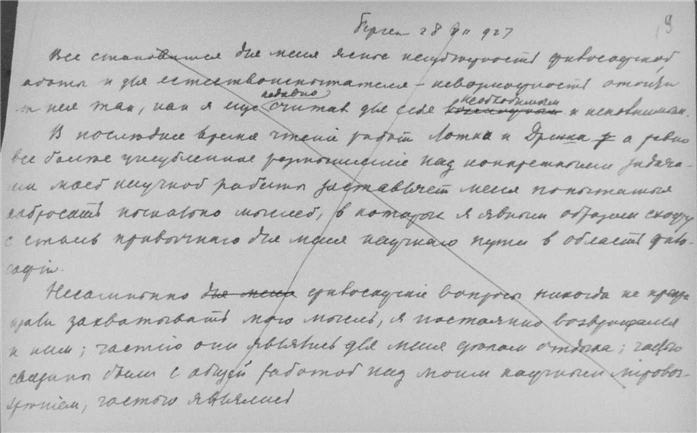 Берген 28 VII 927
9
Все становится для меня яснее неизбежность философской
работы и для естествоиспытателя – невозможность отойти
от нея так, как я еще недавно считал для себя необходимым и неизбежным.
В последнее время чтение работ Лотка и Дриша а равно
все более углубленное размышление над конкретными задача-
ми моей научной работы заставляет меня попытаться
набросать несколько мыслей, в которых я явным образом схожу
с столь привычного для меня научного пути в область фило-
софии.
Несомненно для меня философские вопросы никогда не пере-
ставали захватывать мою мысль, я постоянно возвращался
к ним; частью они являлись для меня отдыха; частью
связаны были с общей работой над моим научным мировоз-
зрением, частью являлись